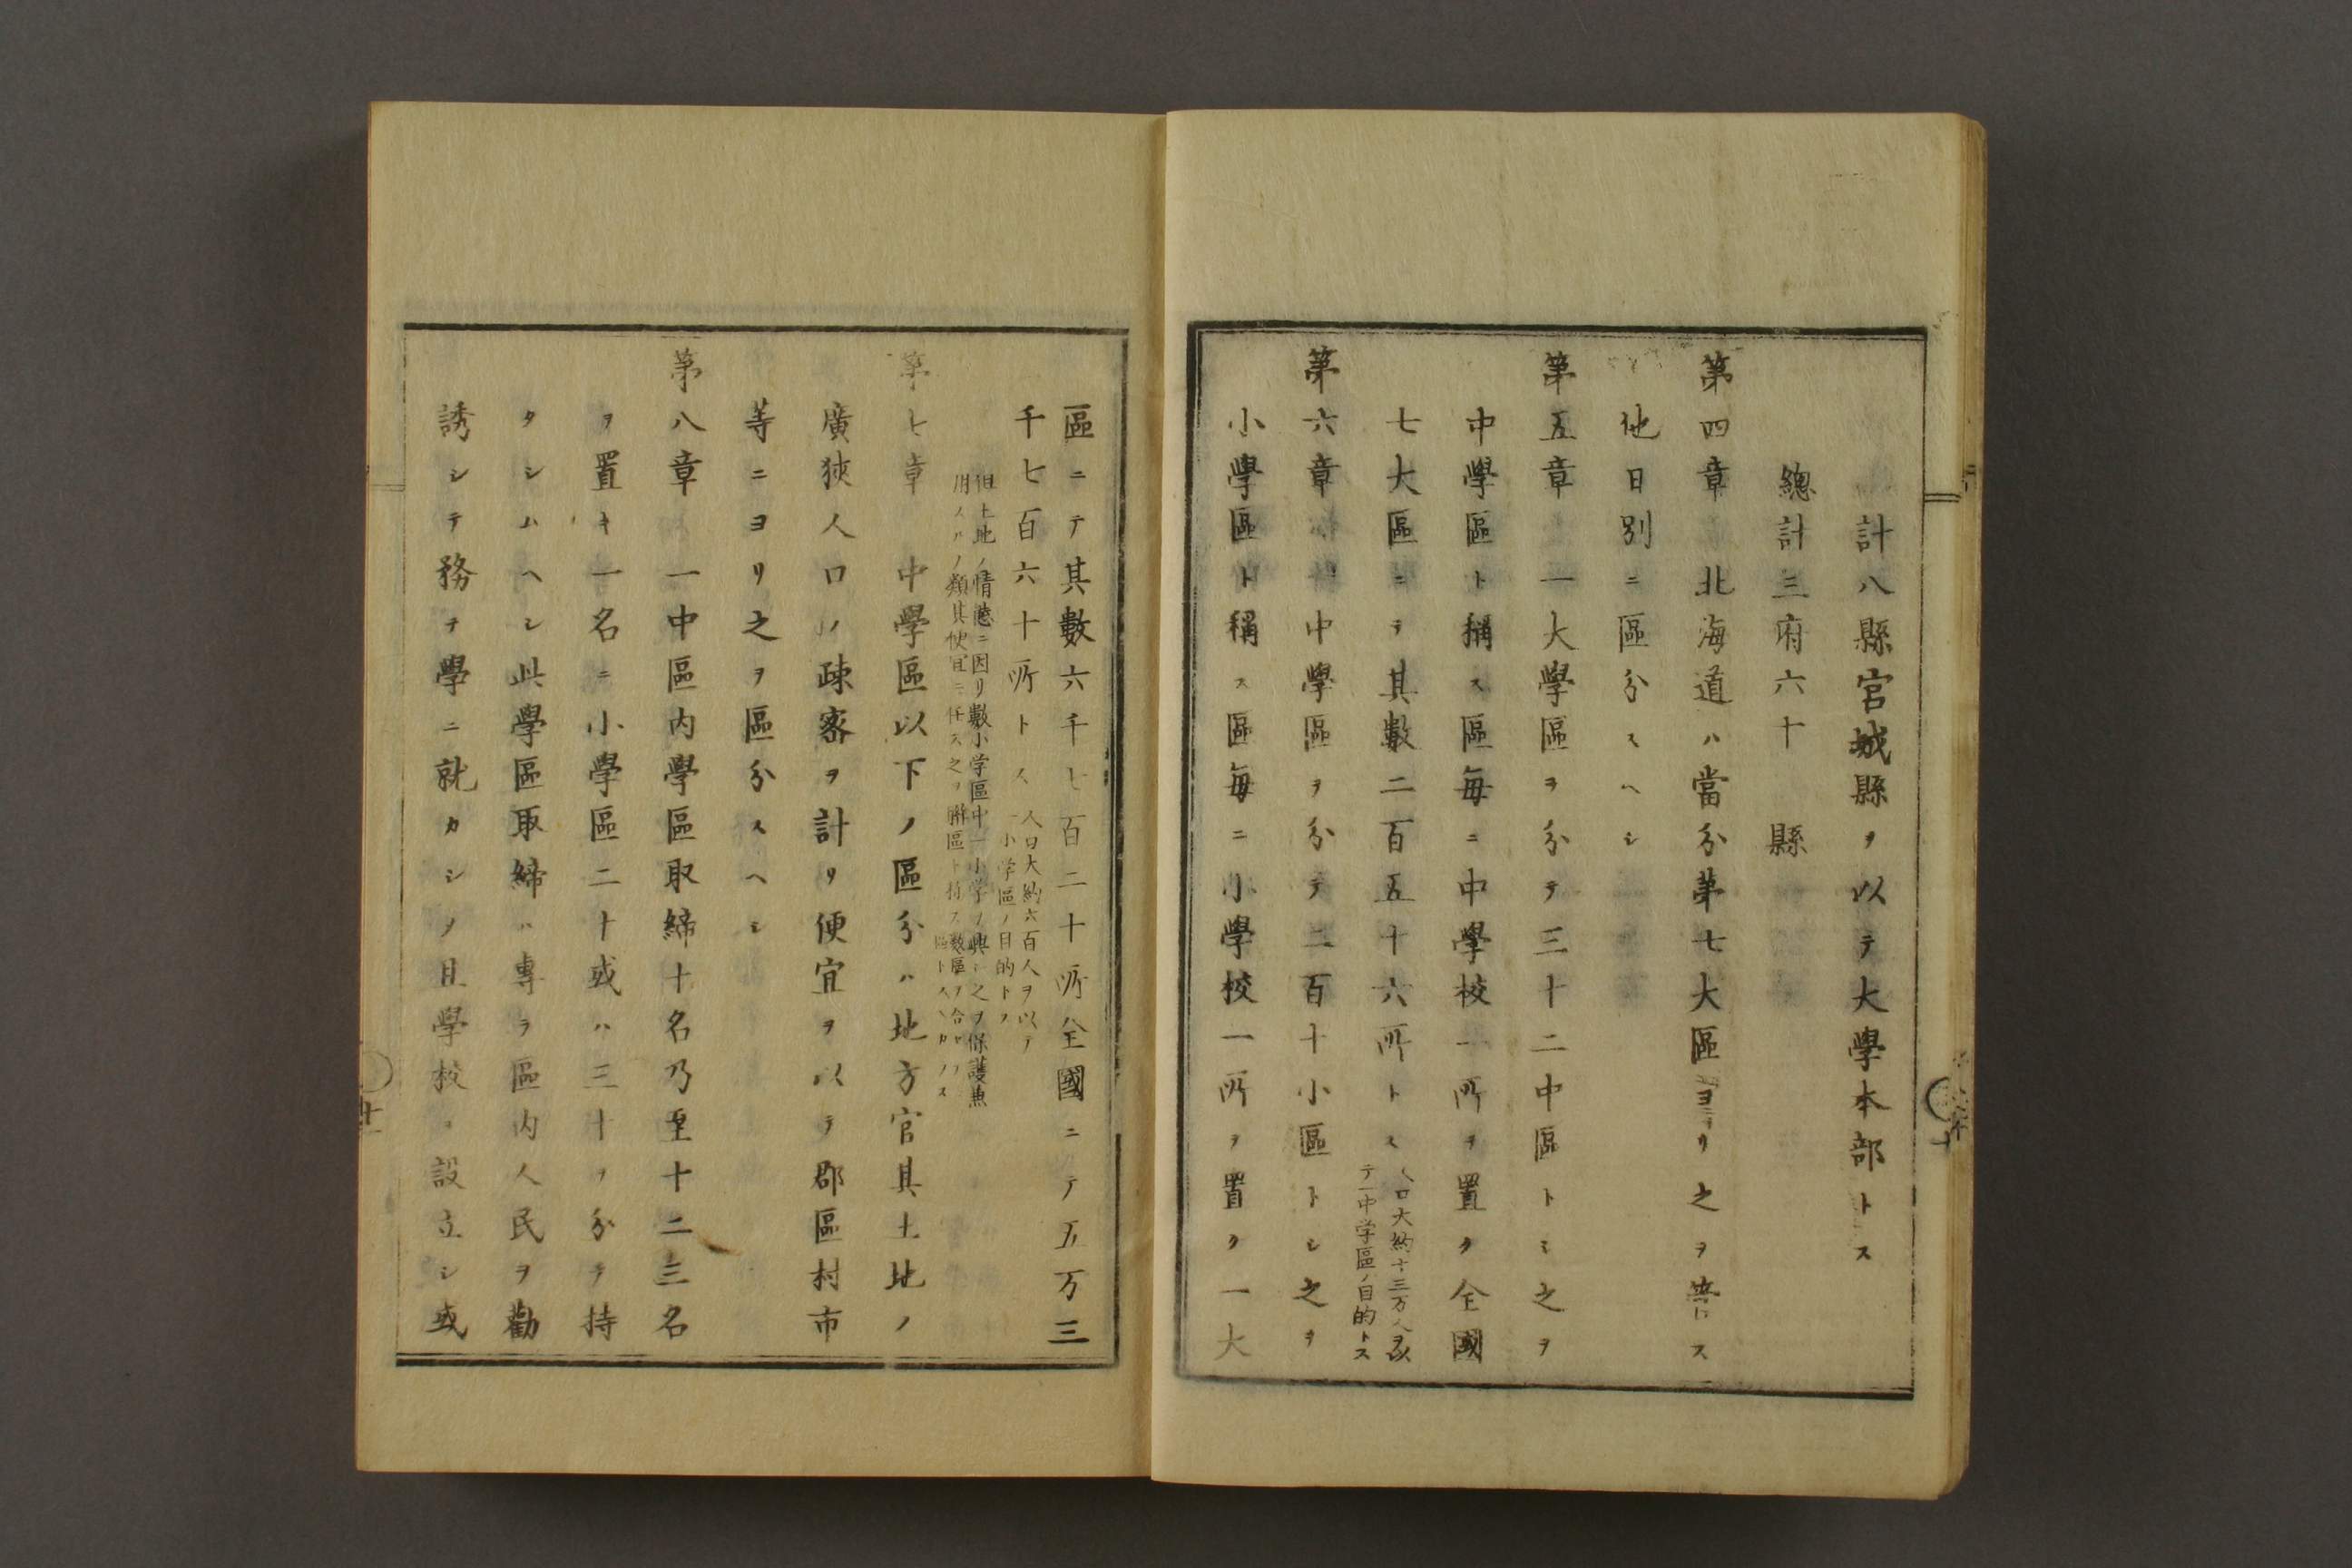 計八縣宮城縣ヲ以テ大學本部トス
總計三府六十　縣
第四章　北海道ハ當分第七大區ヨリ之ヲ管ス
他日別ニ區分スヘシ
第五章　一大學區ヲ分テ三十二中區トシ之ヲ
中學區ト稱ス區每ニ中學校一所ヲ置ク全國
七大區ニテ其數二百五十六所トス
人口大約十三万人ヲ以
テ一中学區ノ目的トス
第六章　中學區ヲ分テ二百十小區トシ之ヲ
小學區ト稱ス區每ニ小學校一所ヲ置ク一大
區ニテ其數六千七百二十所全國ニテ五万三
千七百六十所トス
人口大約六百人ヲ以テ
一小学區ノ目的トス
但土地ノ情態ニ因リ數小学區中一小学ヲ興シ之ヲ保護兼
用スルノ類其便宜ニ任ス之ヲ聯區ト称ス数區ヲ合スルノ
第七章　中學區以下ノ區分ハ地方官其土地ノ
廣狹人口ノ疎密ヲ計リ便宜ヲ以テ郡區村市
等ニヨリ之ヲ區分スヘシ
第八章　一中區內學區取締十名乃至十二三名
ヲ置キ一名ニ小學區二十或ハ三十ヲ分テ持
タシムヘシ此學區取締ハ專ラ區內人民ヲ勸
誘シテ務テ學ニ就カシメ且學校ヲ設立シ或
十
十一